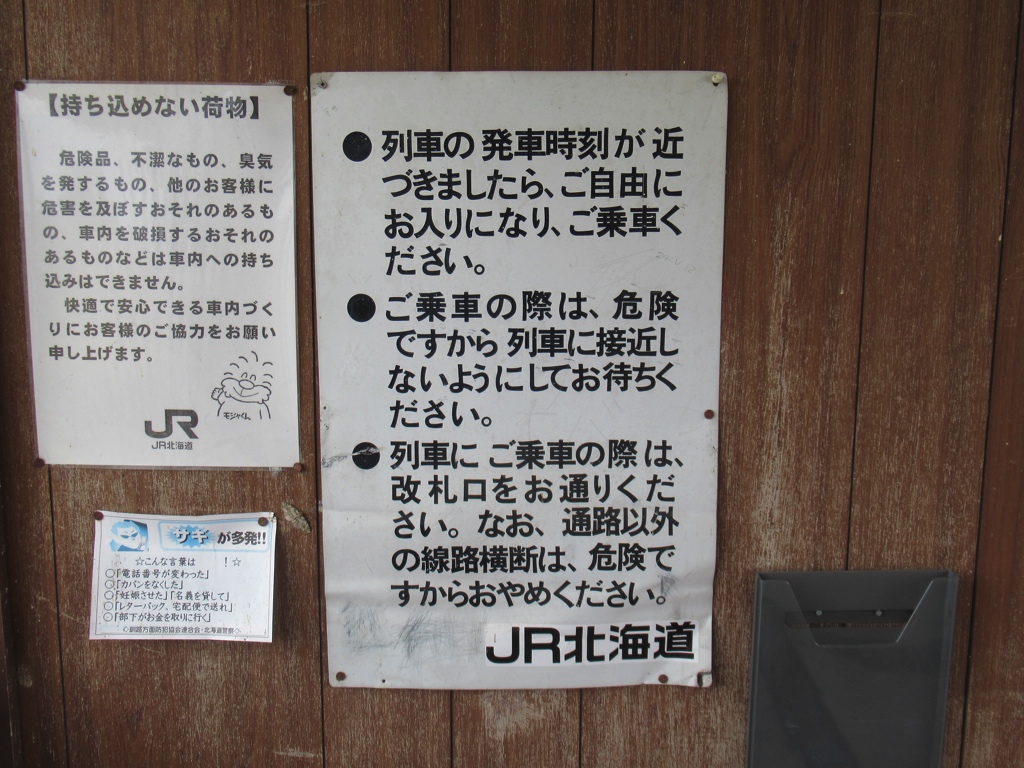 【持ち込めない荷物】
危険品、不潔なもの、臭気
を発するもの、他のお客様に
危害を及ぼすおそれのあるも
の、車内を破損するおそれの
あるものなどは車内への持ち
込みはできません。
快適で安心できる車内づく
りにお客様のご協力をお願い
申し上げます。
モジャくん
JR
JR北海道
サギが多発!!
☆こんな言葉は ！☆
○「電話番号が変わった」
○「カバンをなくした」
○「妊娠させた」「名義を貸して」
○「レターパック、宅配便で送れ」
○「部下がお金を取りに行く」
◇釧路方面防犯協会連合会・北海道警察◇
●列車の発車時刻が近
づきましたら、ご自由に
お入りになり、ご乗車く
ださい。
●ご乗車の際は、危険
ですから列車に接近し
ないようにしてお待ちく
ださい。
●列車にご乗車の際は、
改札口をお通りくだ
さい。なお、通路以外
の線路横断は、危険で
すからおやめください。
JR北海道